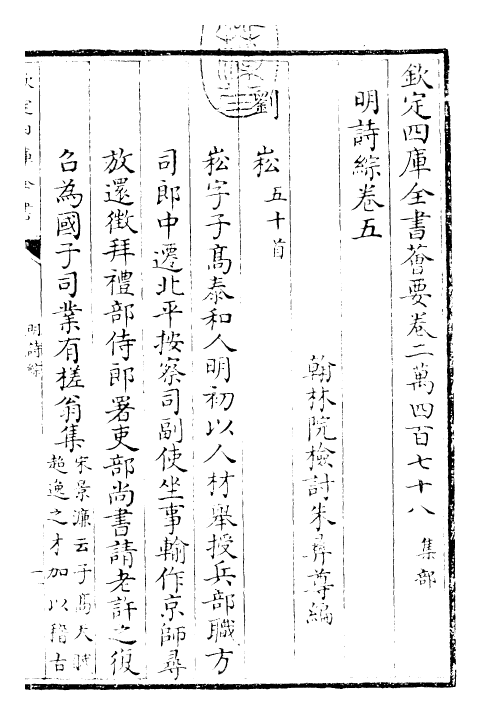 欽定四庫全書薈要卷二萬四百七十八 集部
明詩綜卷五
翰林院檢討朱彝尊編
劉
崧五十首
崧字子髙泰和人明初以人材舉授兵部職方
司郎中遷北平按察司副使坐事輸作京師尋
放還徴拜禮部侍郎署吏部尚書請老許之復
召為國子司業有槎翁集宋景濂云子髙天賦
超逸之才加以稽古
欽定四庫全書
明詩綜
一